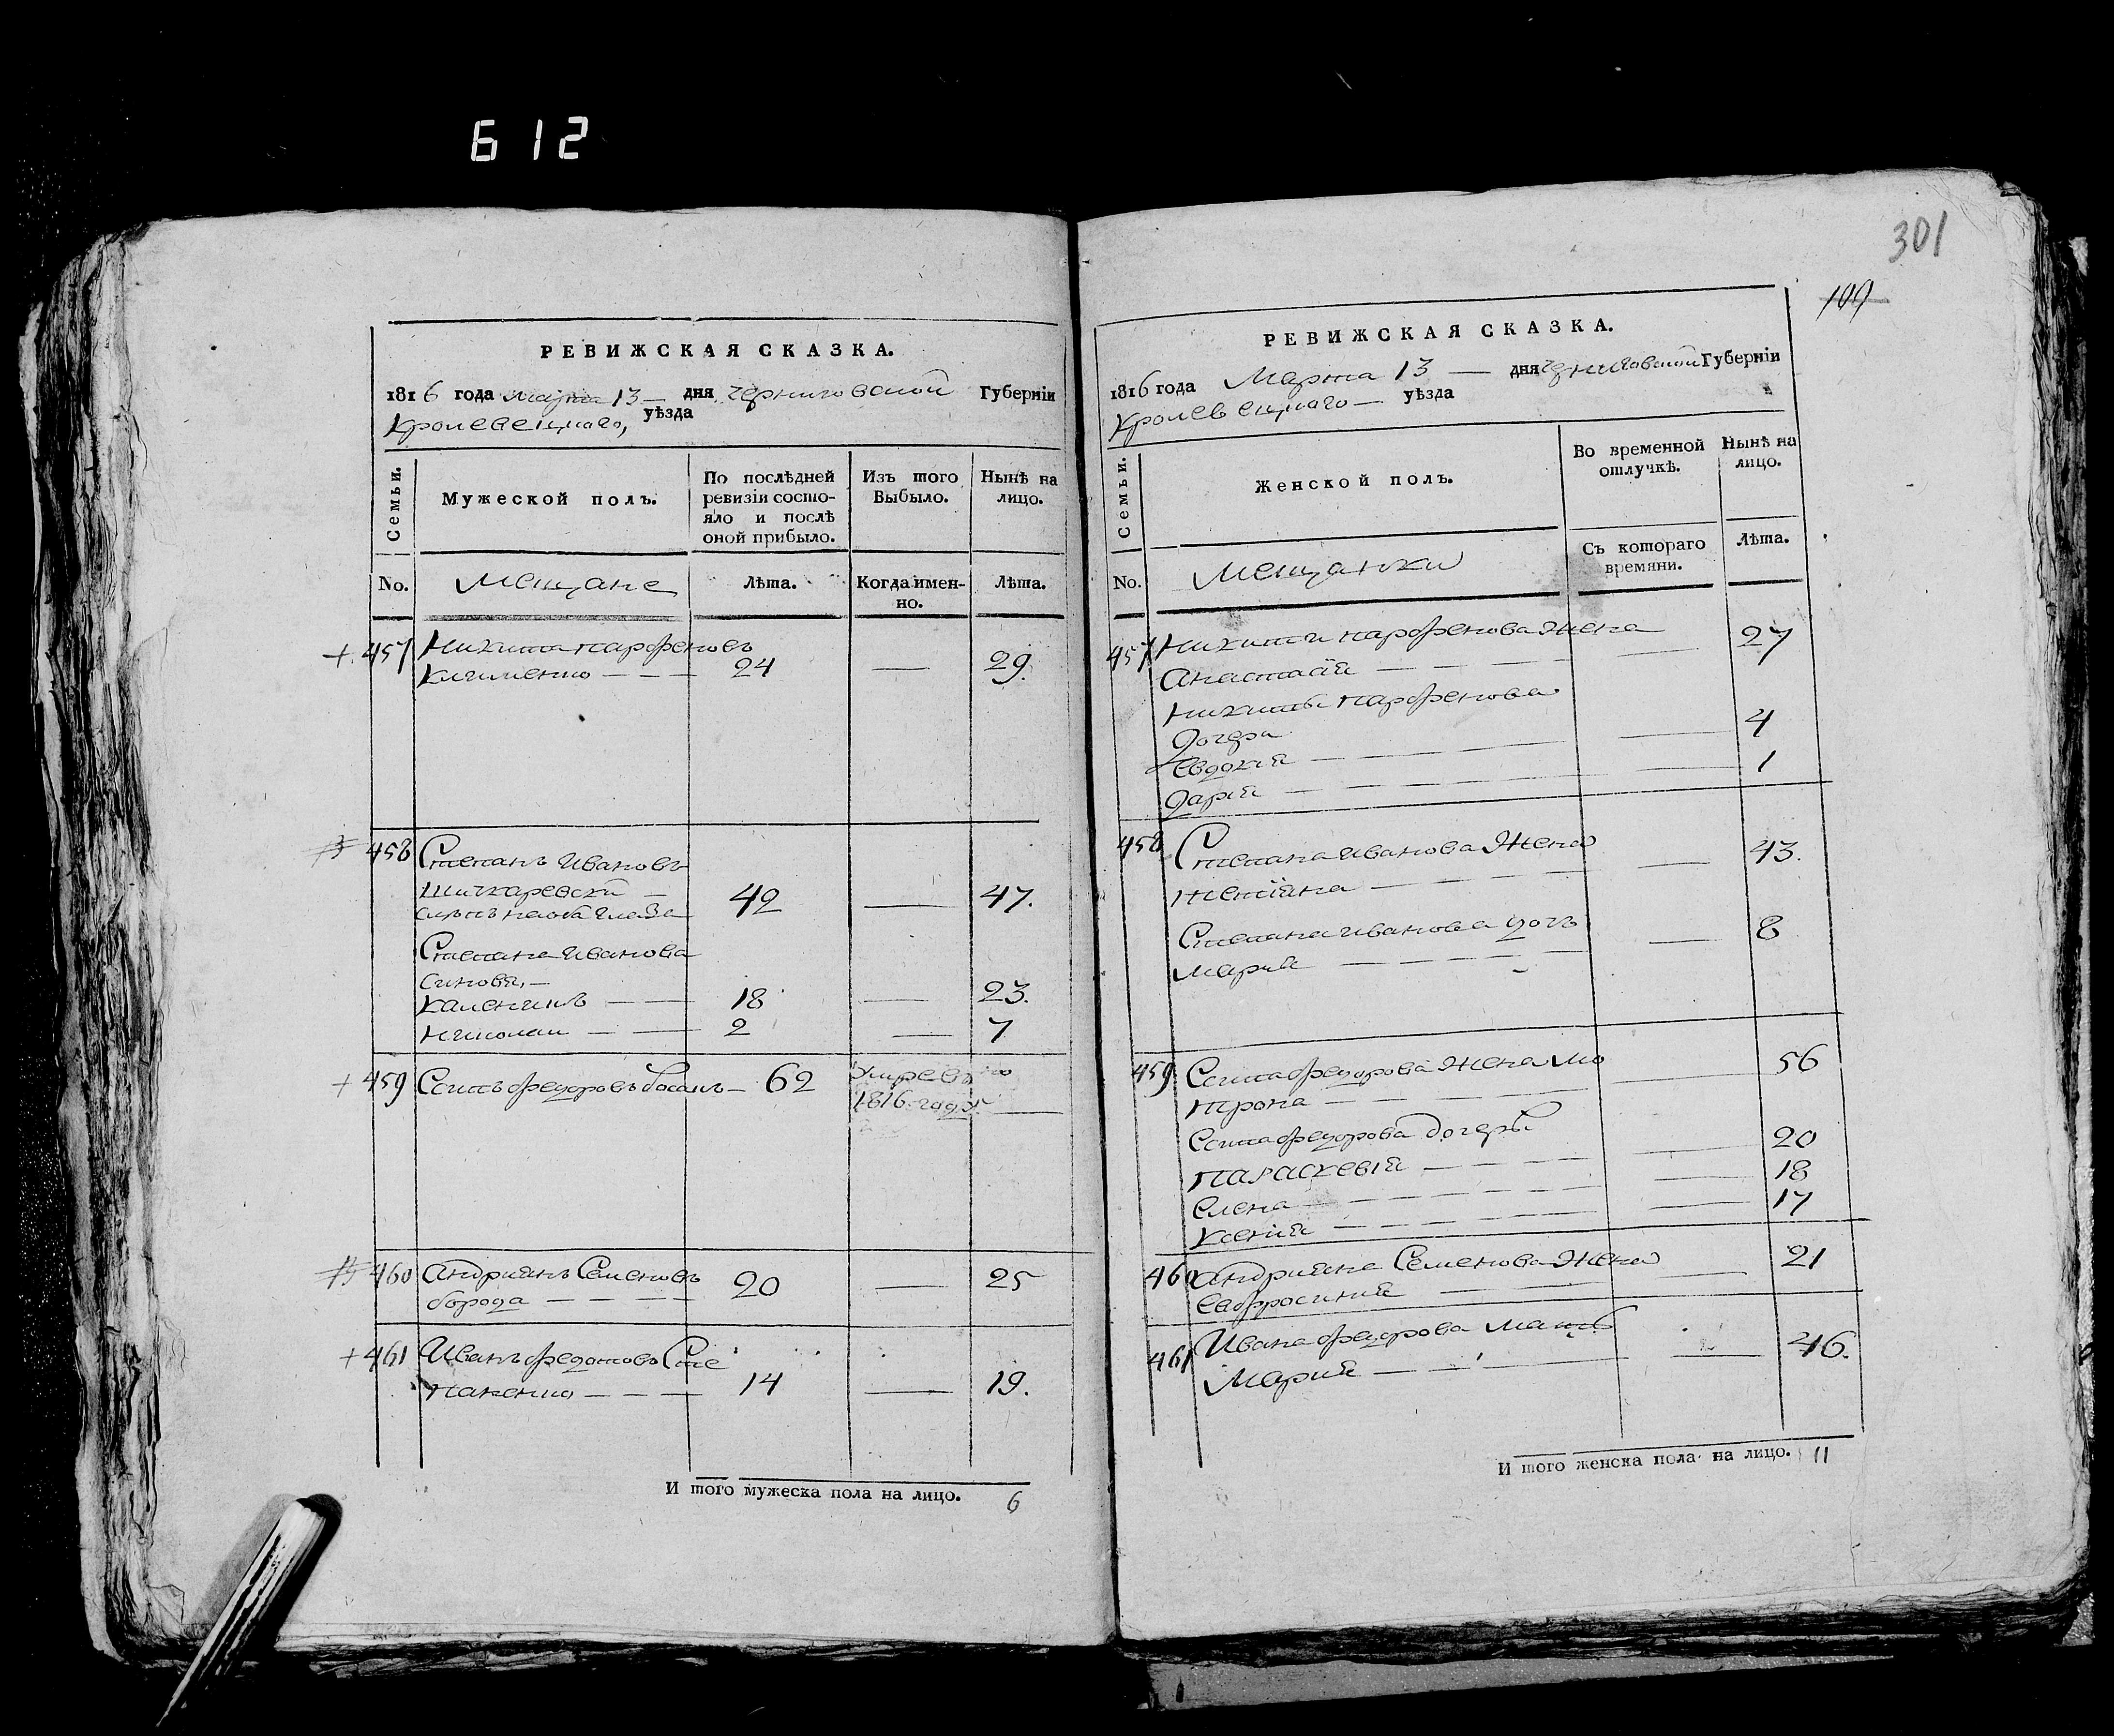 612
РЕВИЖСКАЯ СКАЗКА.
1816 года марта 13 — дня черниговской Губерніи
Кролевецкаго, уѣзда
Семьи.
Мужеской полъ.
По послѣдней ревизіи состо-
яло и послѣ оной прибыло.
Изъ того Выбыло.
Нынѣ на лицо.
No.
Мещане
Лѣта.
Когда имен-
но.
Лѣта.
+ 457 Никита парфеновъ
Клименко — — — 24 — 29.
458 Степанъ Ивановъ
42 — 47.
Степана Иванова
синовя, —
18 — 23.
николаи — — 2 — 7
+ 459 Федоровъ — 62 Умре
1816 года —
460 Андриянъ Семеновъ 20 — 25
борода — — — —
+ 461 Иванъ Сте
паненко — — — 14 — 19.
И того мужеска пола на лицо. 6
301
109
РЕВИЖСКАЯ СКАЗКА.
1816 года Марта 13 — дня черниговской Губерніи
Кролевецкаго — уѣзда
Семьи.
Женской полъ.
Во временной отлучкѣ.
Нынѣ на лицо.
No.
Мещанки
Съ котораго времяни.
Лѣта.
457 Никити парфенова Жена
Анастасія — — — — — 27
Никиты парфенова
Дочери
Евдокія — — — 4
Дарія — — — — 1
458 Степана Иванова Жена
— — — — 43.
Степана Иванова дочь
Марія — — — — — 8
459 Федорова Жена Мо
трона — — — — 56
Федорова дочеры
параскевія — — — — 20
Елена — — — — — 18
Ксенія — — — — — 17
460 Андрияна Семенова Жена
Евфросинія — — — 21
461 Ивана Федорова Мать
Марія — — — 46.
И того женска пола на лицо. 11